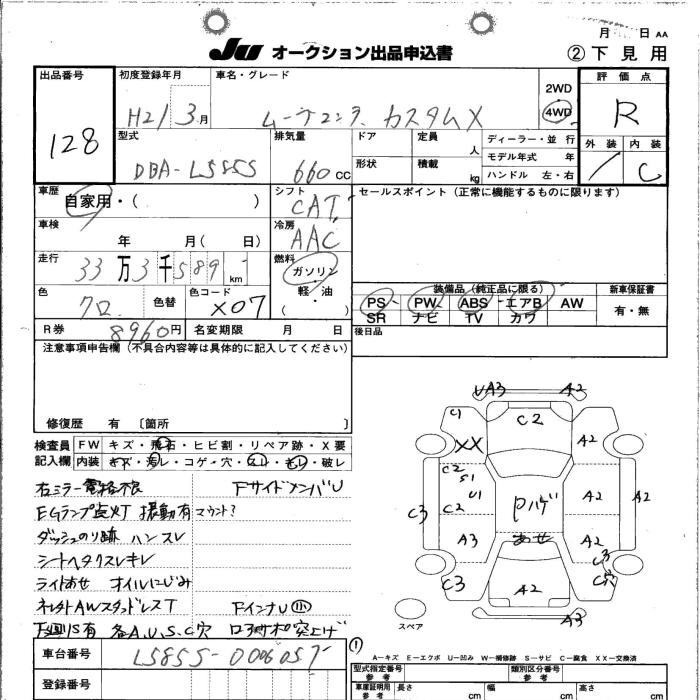 月 日 AA
JU オークション出品申込書
② 下見用
出品番号
128
初度登録年月
H21 3月
車名・グレード
ムーヴコンテ カスタムX
2WD
4WD
評価点
R
外装 内装
C
型式
DBA-L585S
排気量
660 CC
ドア
形状
定員 人
積載 kg
ディーラー・並 行
モデル年式 年
ハンドル 左・右
車歴
自家用・( )
シフト
CAT
セールスポイント(正常に機能するものに限ります)
車検
年 月( 日)
冷房
AAC
走行
33万3千589 km
燃料
ガソリン
軽・油
( )
色
クロ
色替
色コード
X07
装備品(純正品に限る)
PS PW ABS エアB AW
SR ナビ TV カワ
新車保証書
有・無
R券
8960円
名変期限 月 日
後日品
注意事項申告欄(不具合内容等は具体的に記入してください)
修復歴 有 〔箇所 〕
検査員
記入欄
FW キズ・飛石・ヒビ割・リペア跡・X要
内装 キズ・汚レ・コゲ・穴・スレ・モレ・破レ
右ミラー電格不良
下サイドメンバU
EGランプ点灯 振動有マウント?
ダッシュのり跡 ハンスレ
シートヘタクスレキレ
ライトあせ オイルにじみ
下インナU 小
各A.U.S.C穴
UA3
A2
C1
C2
A2
XX
C2
S1
U1
C3
C2
Pハゲ
A2
A2
A3
あせ
A2
C3
C3
A2
C穴
A3
スペア
A-キズ E-エクボ U-凹み W-補修跡 S-サビ C-腐食 XX-交換済
車台番号
L585S-0006057
登録番号
型式指定番号
参考
類別区分番号
参考
車庫証明用
参考
長さ cm
幅 cm
高さ cm